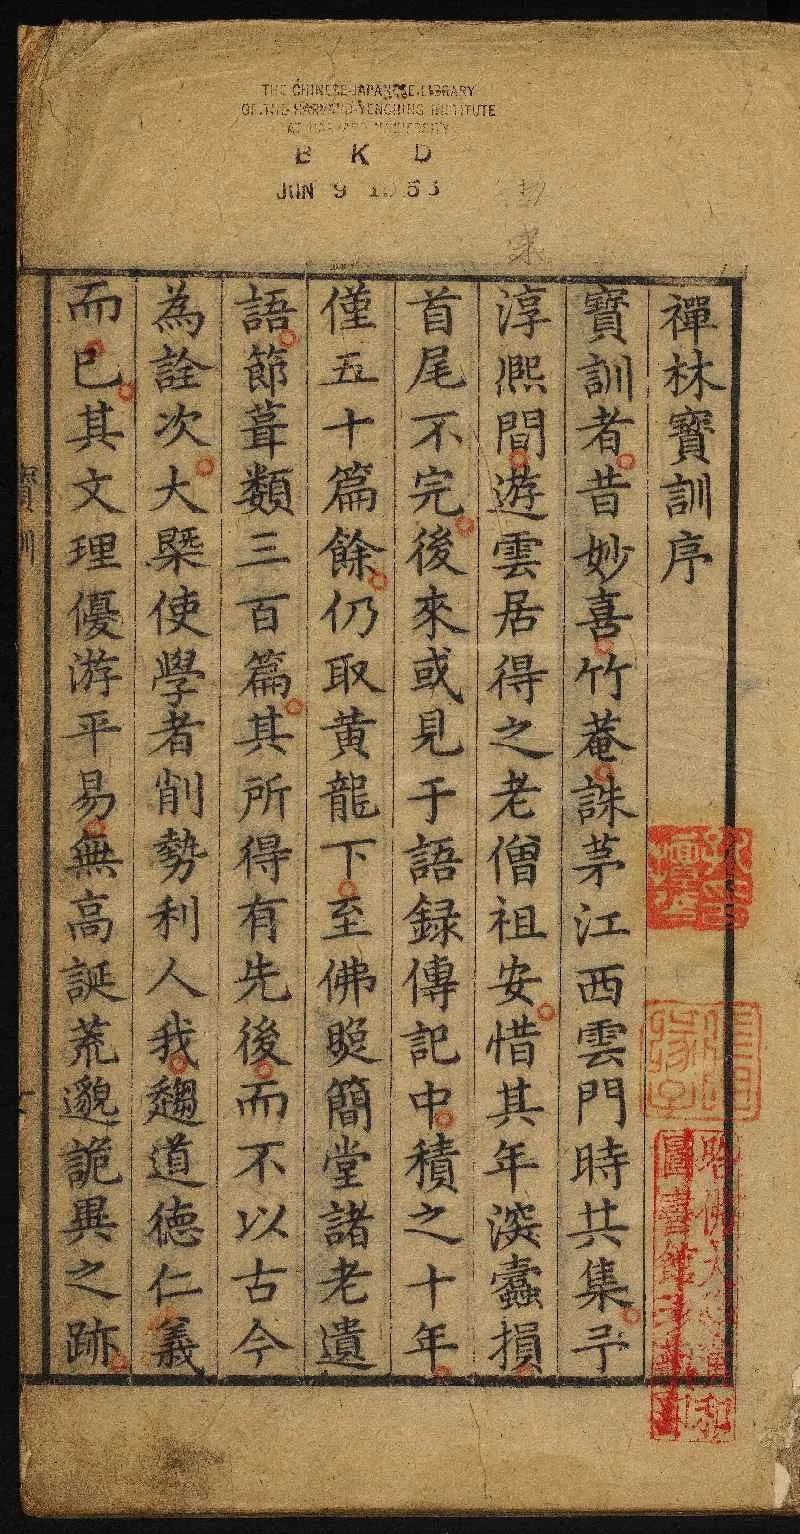 THE CHINESE-JAPANESE LIBRARY
OF THE HARVARD-YENCHING INSTITUTE
AT HARVARD UNIVERSITY
B K D
JUN 9 1953
禪林寳訓序
寳訓者昔妙喜竹菴誅茅江西雲門時共集予
淳熈間遊雲居得之老僧祖安惜其年深蠹損
首尾不完後來或見于語録傳記中積之十年
僅五十篇餘仍取黄龍下至佛照簡堂諸老遺
語節葺類三百篇其所得有先後而不以古今
為詮次大槩使學者削勢利人我趨道德仁義
而已其文理優游平易無高誕荒邈詭異之跡
寳訓